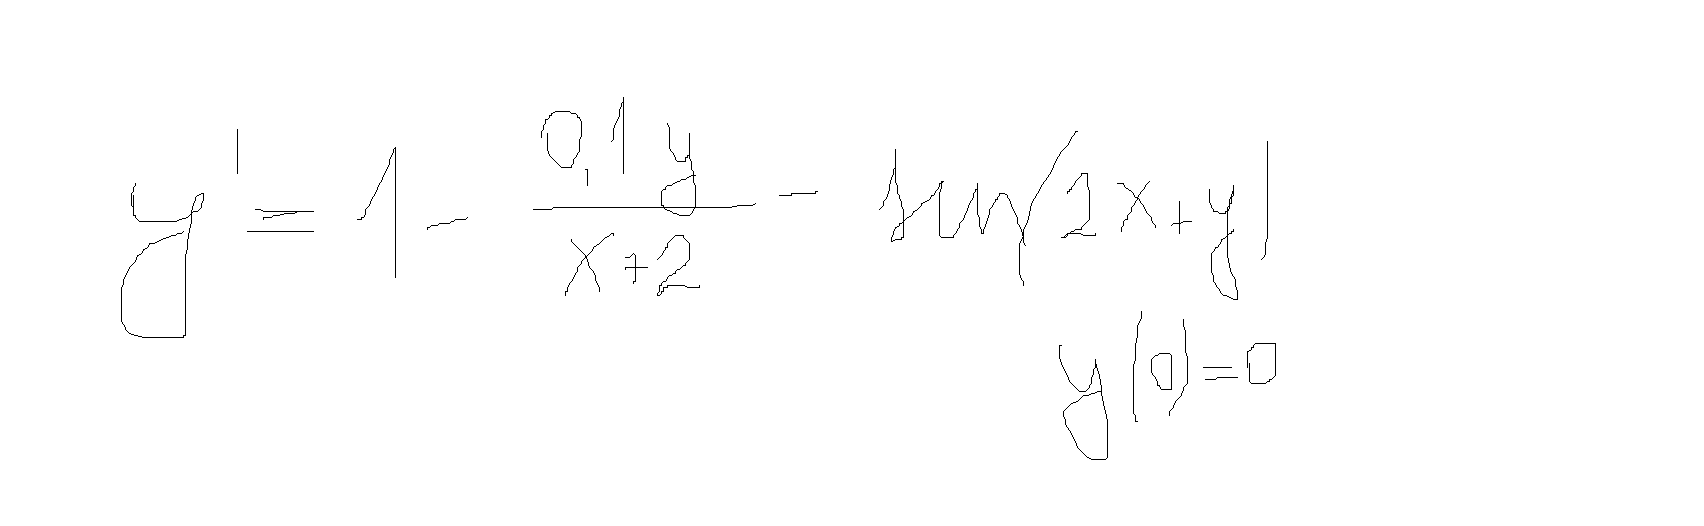 y' = 1 - 0,1y/(x+2) - sin(2x+y)
y(0)=0